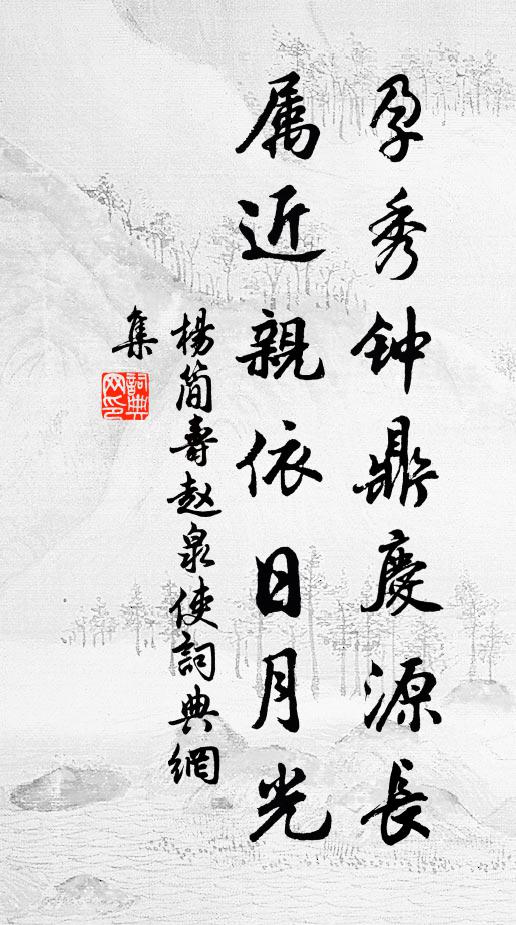 孕秀钟鼎慶源長
属近親依日月光
楊简壽赵泉使詞典網
集
詞典网印